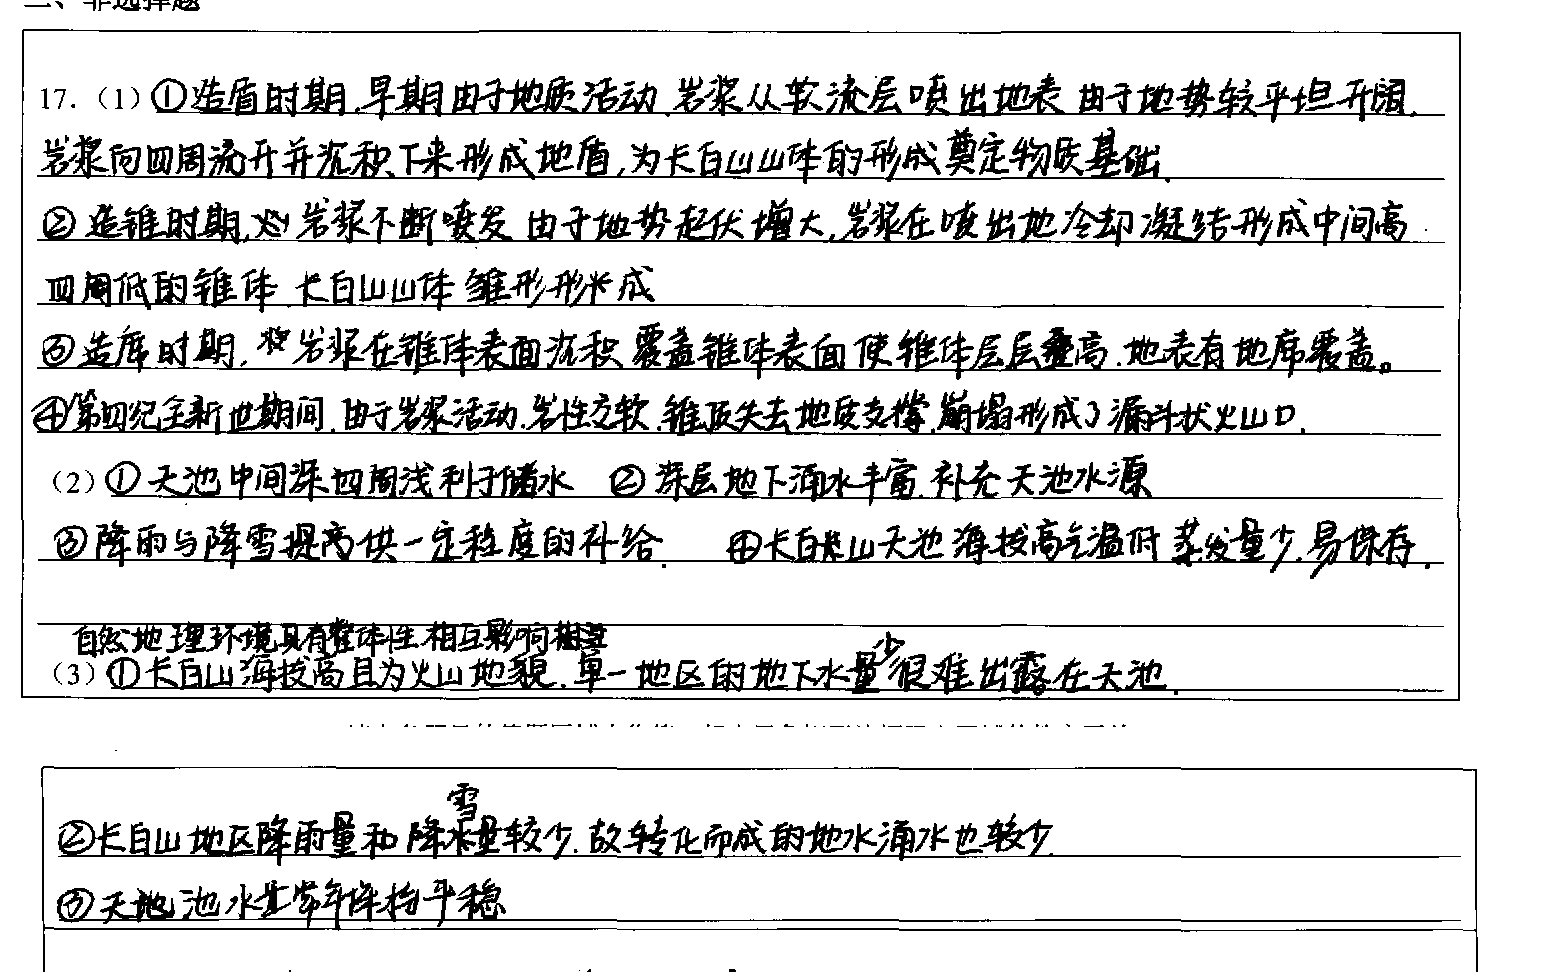 二、非选择题
17.（1）①造盾时期,早期由于地质活动,岩浆从软流层喷出地表,由于地势较平坦开阔,
岩浆向四周流开并沉积下来形成地盾,为长白山山体的形成奠定物质基础.
②造锥时期, 岩浆不断喷发,由于地势起伏增大,岩浆在喷出地冷却凝结形成中间高
四周低的锥体,长白山山体雏形形成
③造席时期, 岩浆在锥体表面沉积,覆盖锥体表面使锥体层层叠高,地表有地席覆盖。
④第四纪全新世期间,由于岩浆活动,岩性变软,锥顶失去地质支撑,崩塌形成了漏斗状火山口.
（2）①天池中间深四周浅利于储水 ②深层地下涌水丰富,补充天池水源
③降雨与降雪提高供一定程度的补给. ④长白山天池海拔高气温低蒸发量少,易保存.
自然地理环境具有整体性,相互影响
（3）①长白山海拔高且为火山地貌,单一地区的地下水量少很难出露在天池.
②长白山地区降雨量和降雪量较少,故转化而成的地水涌水也较少
③天池水量常年保持平稳